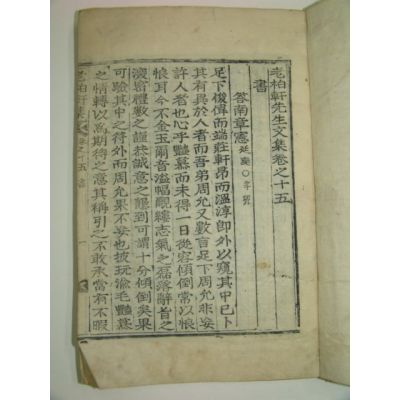 老柏軒先生文集卷之十五
書
答南章憲
足下俊偉而端莊軒昻而溫淳卽外以窺其中已卜
其有異於人者而吾弟周允又數言足下周允非妄
許人者也心乎豔慕而未得一日從容傾倒常以恨
恨耳今不金玉爾音溢幅覼縷志氣之磊落辭旨之
密禮數之謹恭誠意之懇到可謂十分傾倒矣果
可驗其中之符外而周允果不妄也披玩渝毛豔慕
之情轉以爲期待之意其稱引之不敢承當有不暇
老柏軒集 卷之十五 書 一